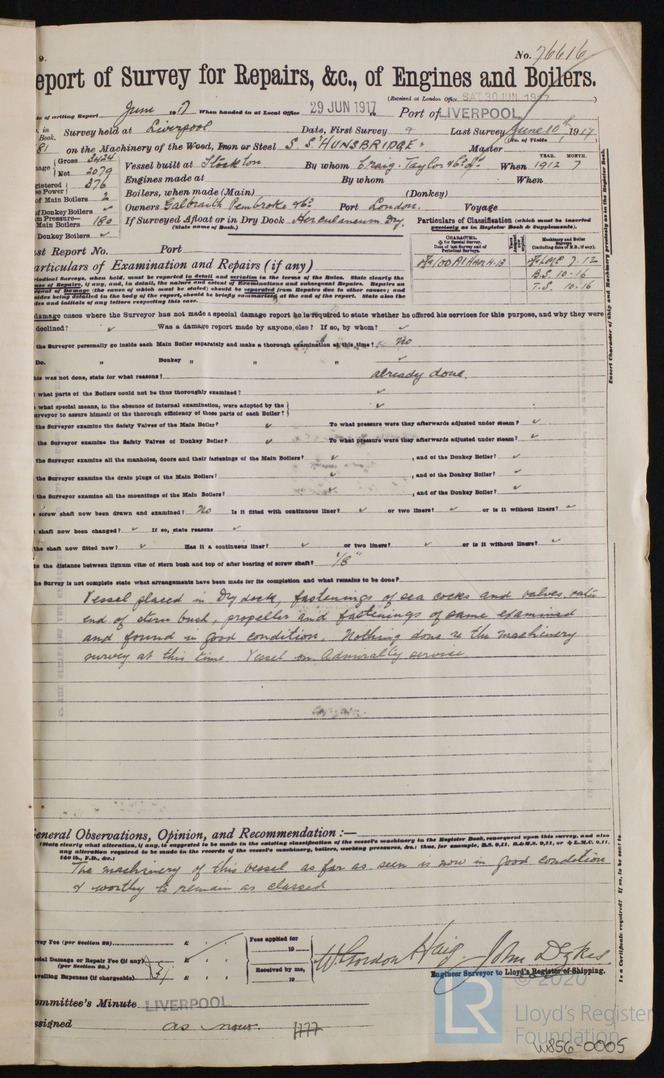 9. No. 76616
eport of Survey for Repairs, &c., of Engines and Boilers.
(Received at London Office SAT. 30 JUN. 1917)
te of writing Report June 1917 When handed in at Local Office 29 JUN 1917 Port of LIVERPOOL
o. in Survey held at Liverpool Date, First Survey 9 Last Survey June 10th 1917
Book. (No. of Visits 1)
81 on the Machinery of the Wood, Iron or Steel S.S. "HUNSBRIDGE" Master
nage Gross 3424 Net 2079 Vessel built at Stockton By whom Craig, Taylor & Co Ld. When YEAR. 1912 MONTH. 7
gistered 276 Engines made at By whom When
e Power
of Main Boilers 2 Boilers, when made (Main) (Donkey)
of Donkey Boilers ✓ Owners Galbraith Pembroke & Co Port London. Voyage
m Pressure—
Main Boilers 180 If Surveyed Afloat or in Dry Dock Herculaneum Dry.
(State name of Dock.)
Donkey Boilers ✓
Particulars of Classification (which must be inserted precisely as in Register Book & Supplements).
CHARACTER.
Machinery and Boiler Surveys
100A1 4.13
LMC 7.12
B.S. 10.16
T.S. 10.16
ast Report No. Port
articulars of Examination and Repairs (if any)
damage cases where the Surveyor has not made a special damage report he is required to state whether he offered his services for this purpose, and why they were
declined? ✓ Was a damage report made by anyone else? If so, by whom? ✓
the Surveyor personally go inside each Main Boiler separately and make a thorough examination at this time? No
Do. " Donkey " " " ✓
his was not done, state for what reasons? already done.
what parts of the Boilers could not be thoroughly examined? ✓
what special means, in the absence of internal examination, were adopted by the
urveyor to assure himself of the thorough efficiency of those parts of each Boiler? ✓
the Surveyor examine the Safety Valves of the Main Boiler? ✓ To what pressure were they afterwards adjusted under steam? ✓
the Surveyor examine the Safety Valves of Donkey Boiler? ✓ To what pressure were they afterwards adjusted under steam? ✓
the Surveyor examine all the manholes, doors and their fastenings of the Main Boilers? ✓ , and of the Donkey Boiler? ✓
the Surveyor examine the drain plugs of the Main Boilers? ✓ , and of the Donkey Boiler? ✓
the Surveyor examine all the mountings of the Main Boilers? ✓ , and of the Donkey Boiler? ✓
screw shaft now been drawn and examined? No Is it fitted with continuous liner? ✓ or two liners? ✓ or is it without liners? ✓
shaft now been changed? ✓ If so, state reasons ✓
the shaft now fitted new? ✓ Has it a continuous liner? ✓ or two liners? ✓ or is it without liners? ✓
is the distance between lignum vitæ of stern bush and top of after bearing of screw shaft? 1/8"
the Survey is not complete state what arrangements have been made for its completion and what remains to be done?
Vessel placed in Dry dock, fastenings of sea cocks and valves, outer
end of stern bush, propeller and fastenings of same examined
and found in good condition. Nothing done to the machinery
survey at this time. Vessel on Admiralty service.
eneral Observations, Opinion, and Recommendation :—
(State clearly what alteration, if any, is suggested to be made in the existing classification of the vessel's machinery in the Register Book, consequent upon this survey, and also
any alteration required to be made in the records of the vessel's machinery, boilers, working pressures, &c.; thus, for example, B.S. 9,11, B.&M.S. 9,11, or L.M.C. 9,11,
140 lb., F.D., &c.)
The machinery of this vessel as far as seen is now in good condition
& worthy to remain as classed.
vey Fee (per Section 28) £ : : Fees applied for 19
ecial Damage or Repair Fee (if any) (per Section 28.) £ : :
avelling Expenses (if chargeable) £ : : Received by me, 19
W Gordon Haig John Dykes
Engineer Surveyor to Lloyd's Register of Shipping.
ommittee's Minute LIVERPOOL
ssigned as now.
© 2020
LR Lloyd's Register
Foundation
W856-0005